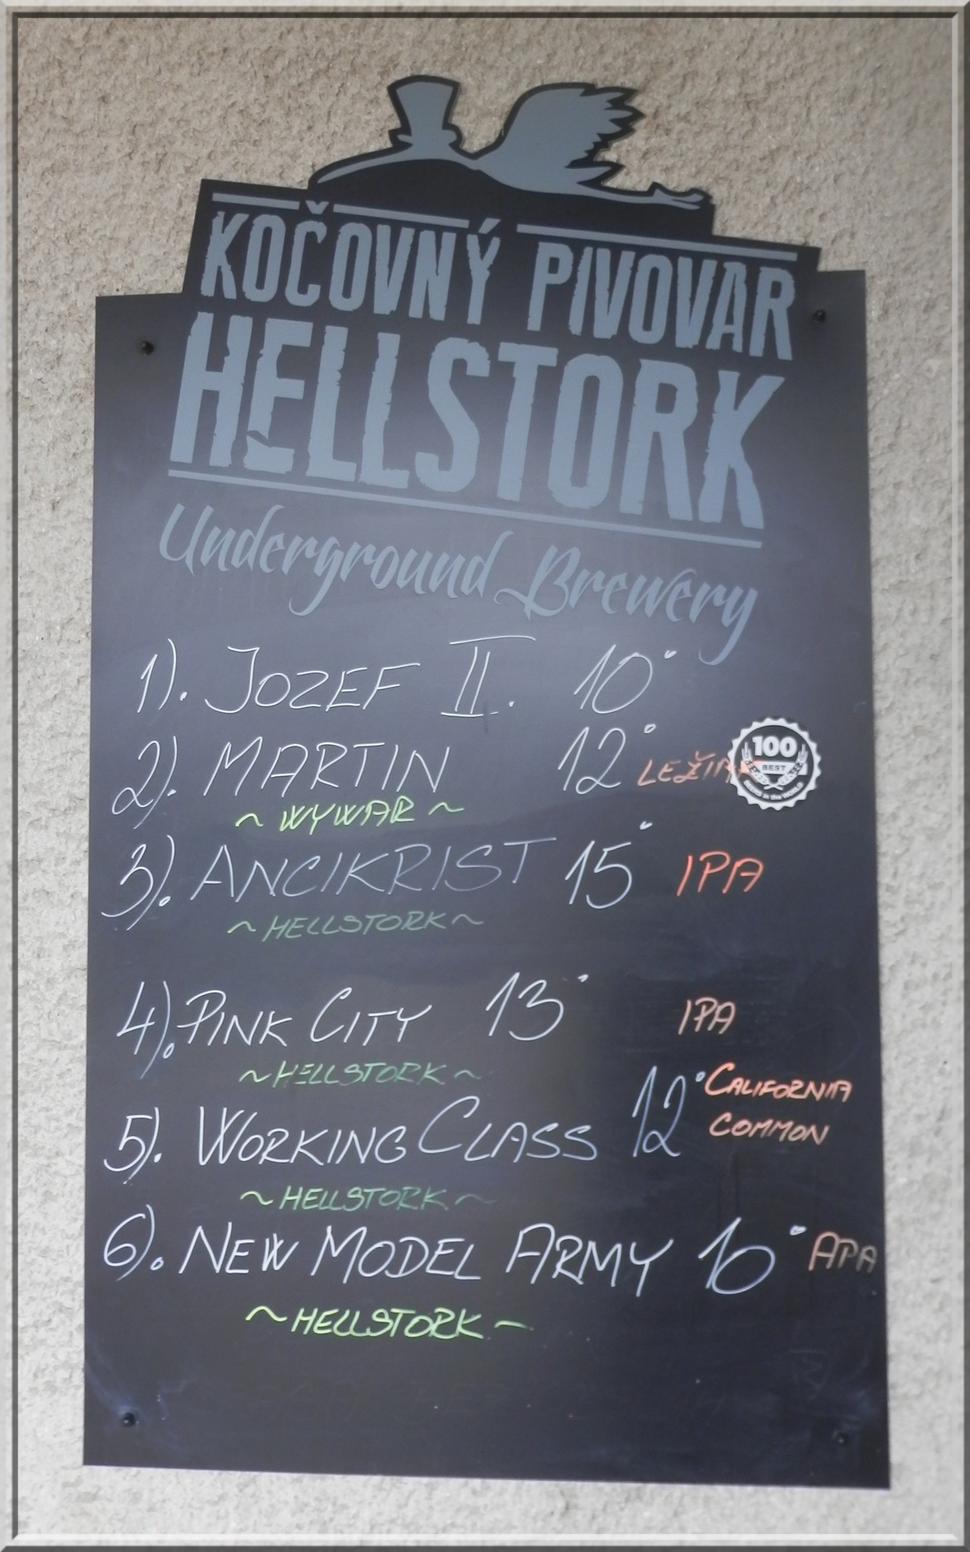 KOČOVNÝ PIVOVAR
HELLSTORK
Underground Brewery
1). JOZEF II. 10°
2). MARTIN 12°
100
BEST
~ WYWAR ~
3). ANCIKRIST 15° IPA
~ HELLSTORK ~
4). PINK CITY 13° IPA
~ HELLSTORK ~
5). WORKING CLASS 12° CALIFORNIA
COMMON
~ HELLSTORK ~
6). NEW MODEL ARMY 10° APA
~ HELLSTORK ~